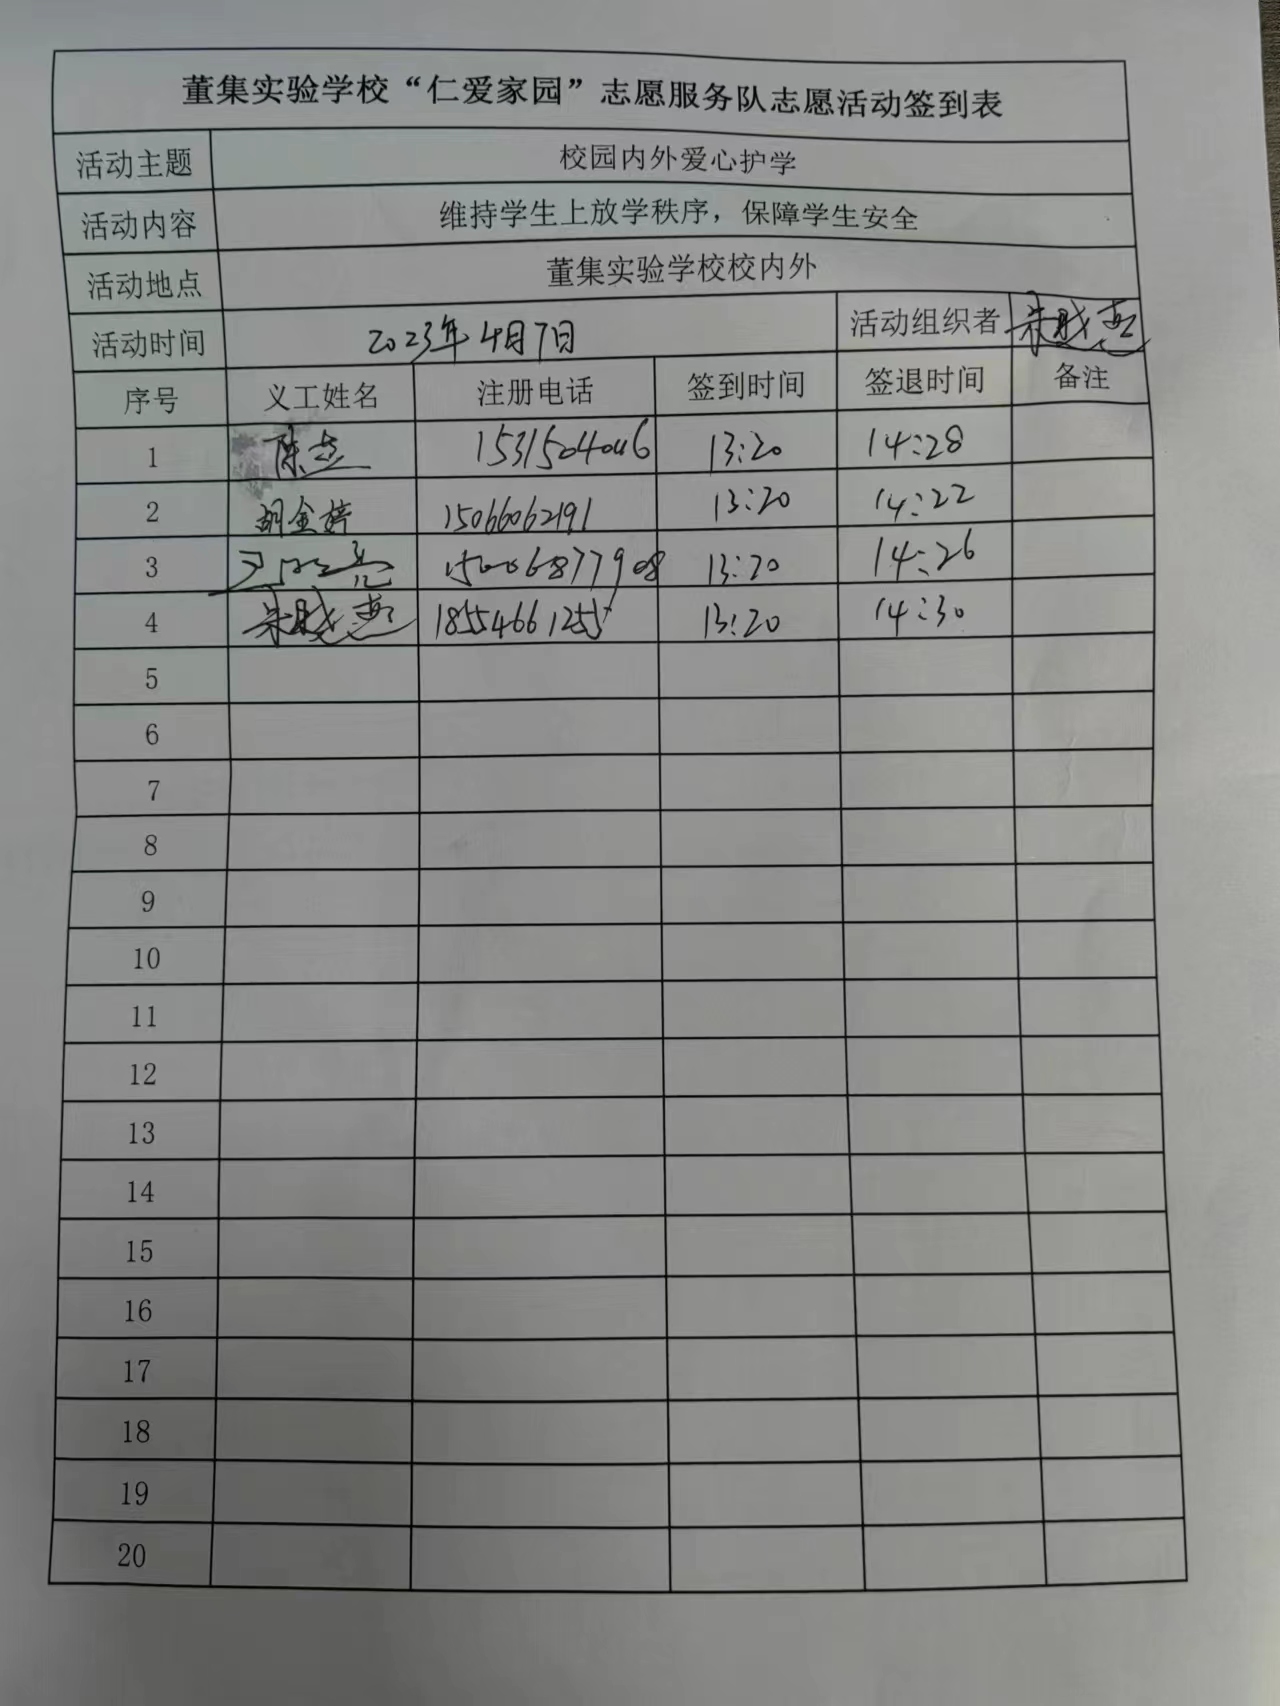 董集实验学校“仁爱家园”志愿服务队志愿活动签到表
活动主题 校园内外爱心护学
活动内容 维持学生上放学秩序，保障学生安全
活动地点 董集实验学校校内外
活动时间 2023年4月7日 活动组织者
序号 义工姓名 注册电话 签到时间 签退时间 备注
1 13:20 14:28
2 胡金婷 15066062191 13:20 14:22
3 13:20 14:26
4 18554661255 13:20 14:30
5
6
7
8
9
10
11
12
13
14
15
16
17
18
19
20